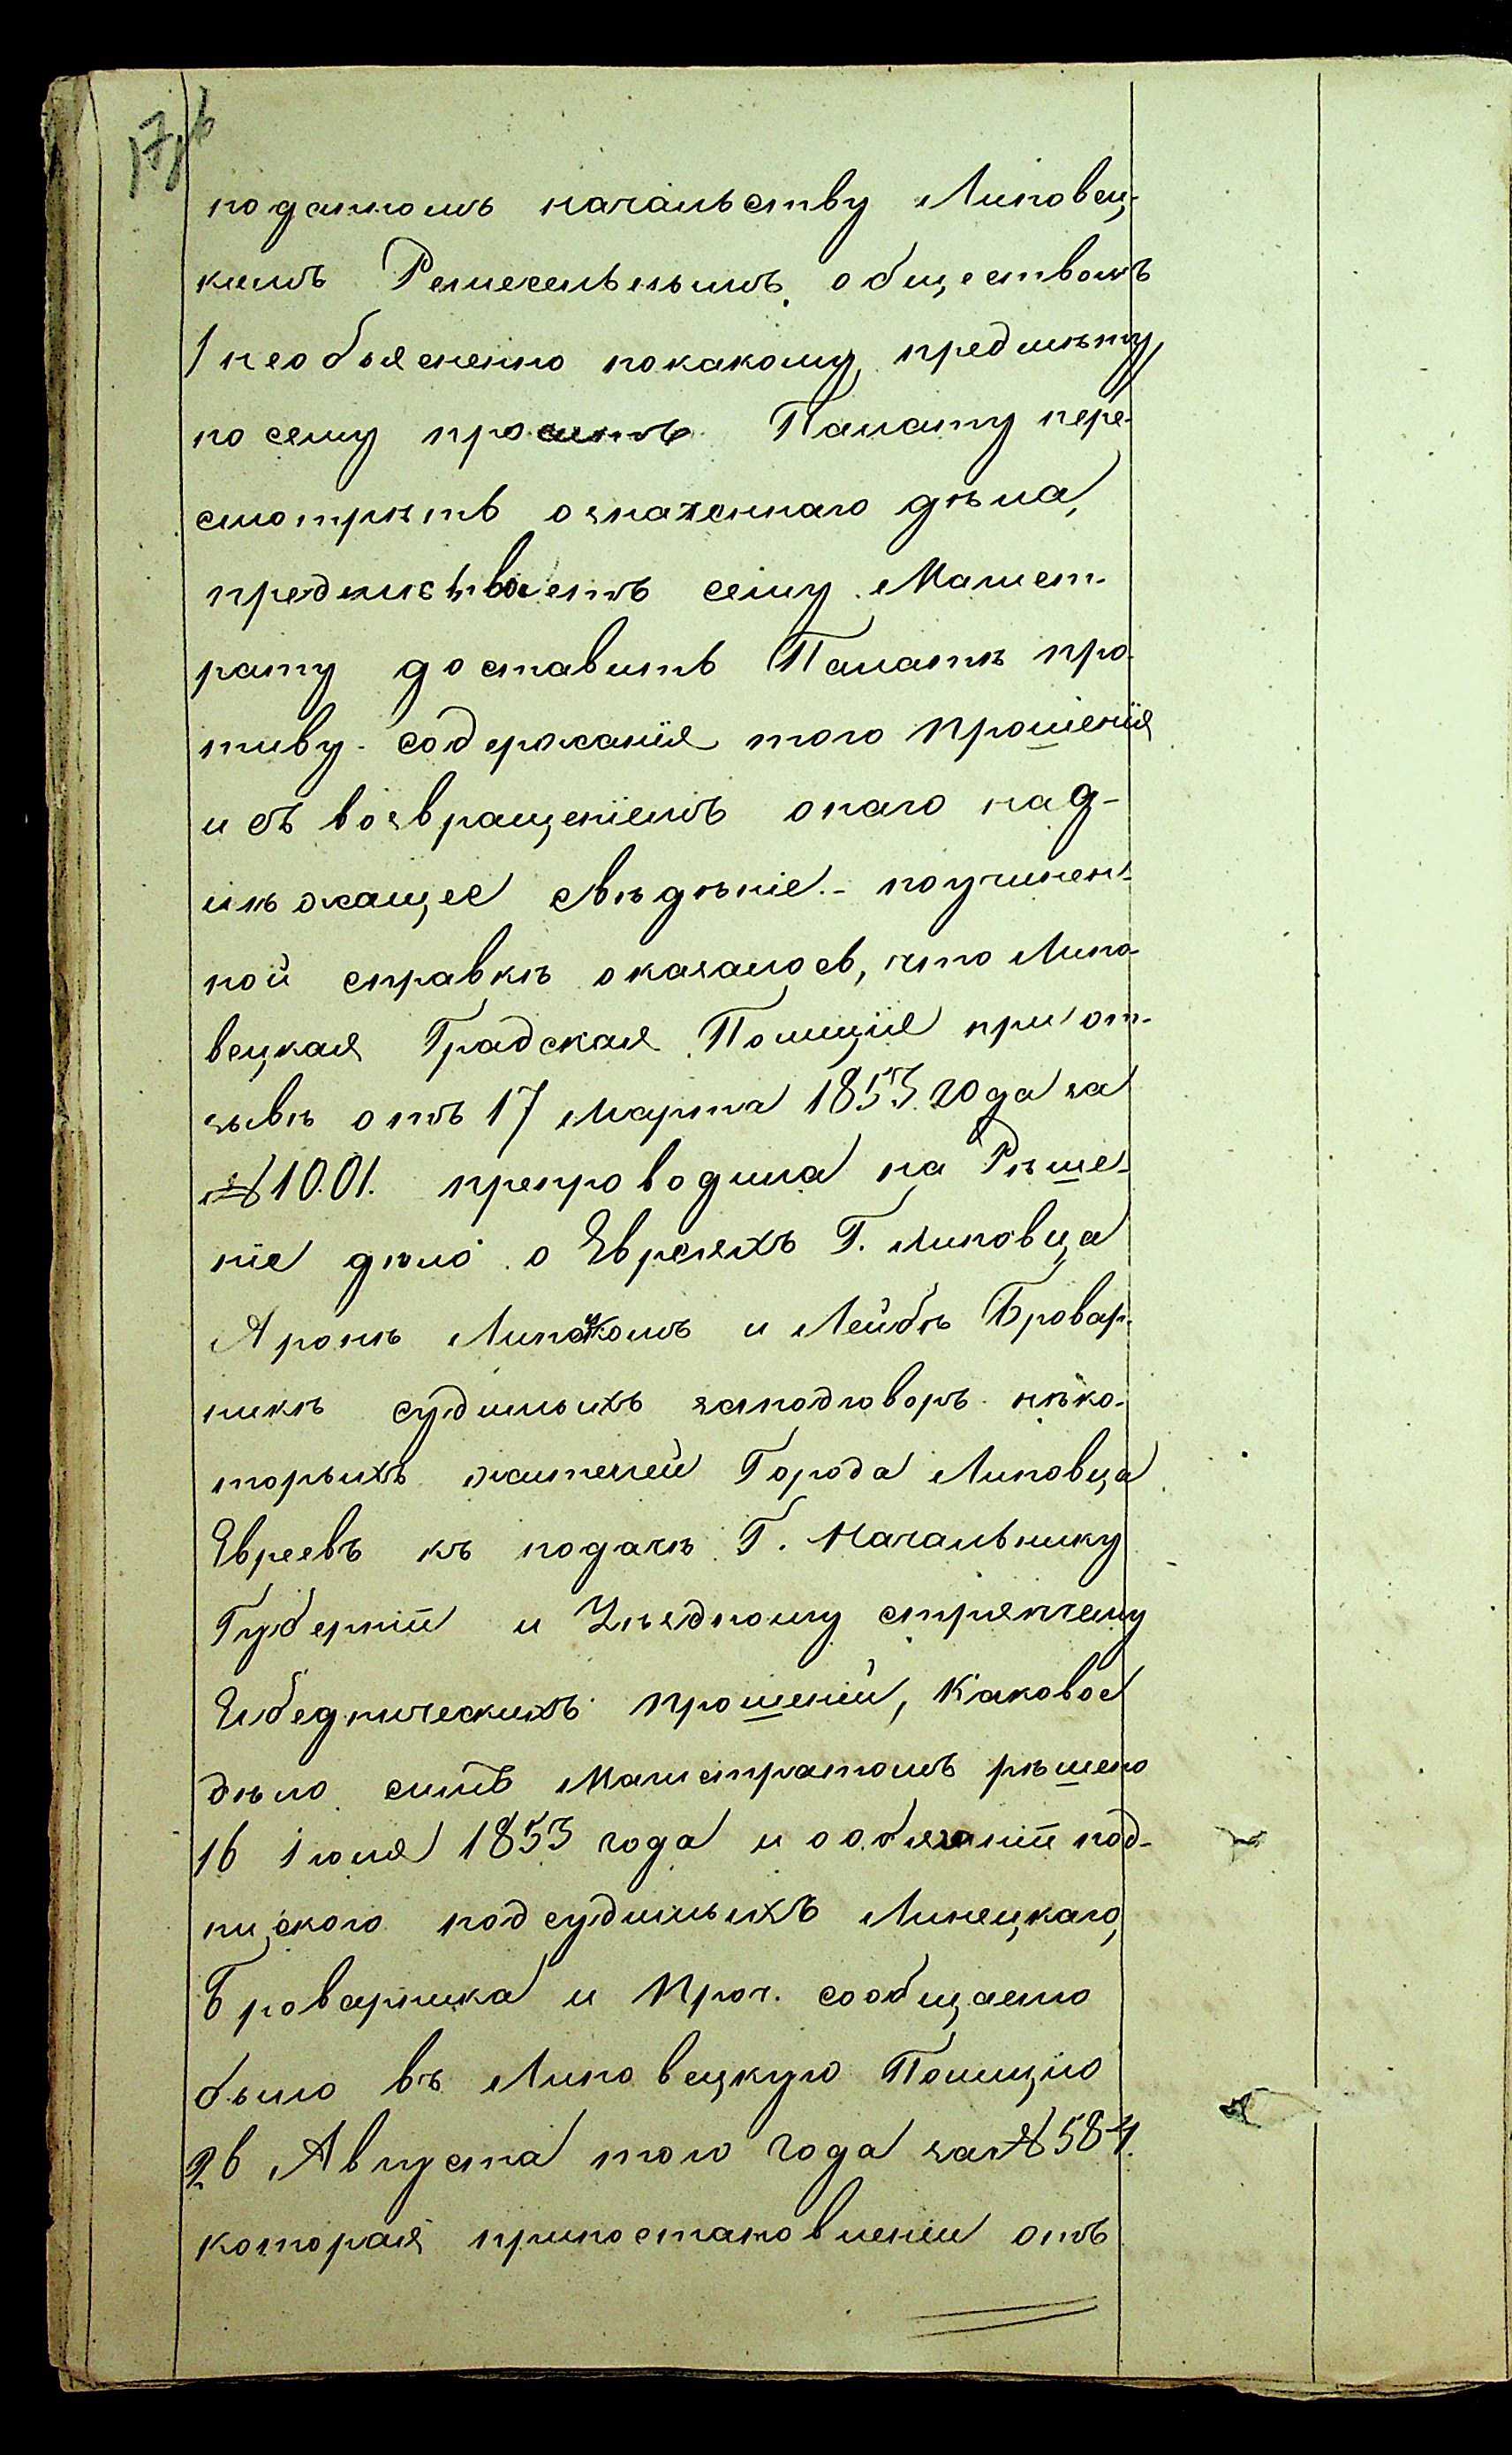 17об
поданномъ начальству Липовец-
кимъ Ремесельнымъ обществомъ
/необъясненно покакому предмѣту/
посему проситъ Палату пере-
смотрѣть означеннаго дѣла,
предписываетъ сему Магист-
рату доставить Палатѣ про-
тиву содержанія того прошенія
и съ возвращеніемъ онаго над-
лѣжащее свѣдѣніе. - поучинен-
ной справкѣ оказалось, что Липо-
вецкая Градская Полиція при от-
зывѣ отъ 17 Марта 1853 года за
№ 1001. препроводила на Рѣше-
ніе дѣло о Евреяхъ Г. Липовца
Аронѣ и Лейбѣ Бровар-
никѣ судимыхъ заподговоръ нѣко-
торыхъ жителей Города Липовца
Евреевъ къ подачѣ Г. Начальнику
Губерніи и Уѣздному стряпчему
Ябедническихъ прошеній, каковое
дѣло симъ Магистратомъ рѣшено
16 Іюля 1853 года и ообязаніи под-
пискою подсудимыхъ Линецкаго,
Броварника и проч. сообщаемо
было въ Липовецкую Полицію
26 Августа того года за № 584.
которая припостановленіи отъ